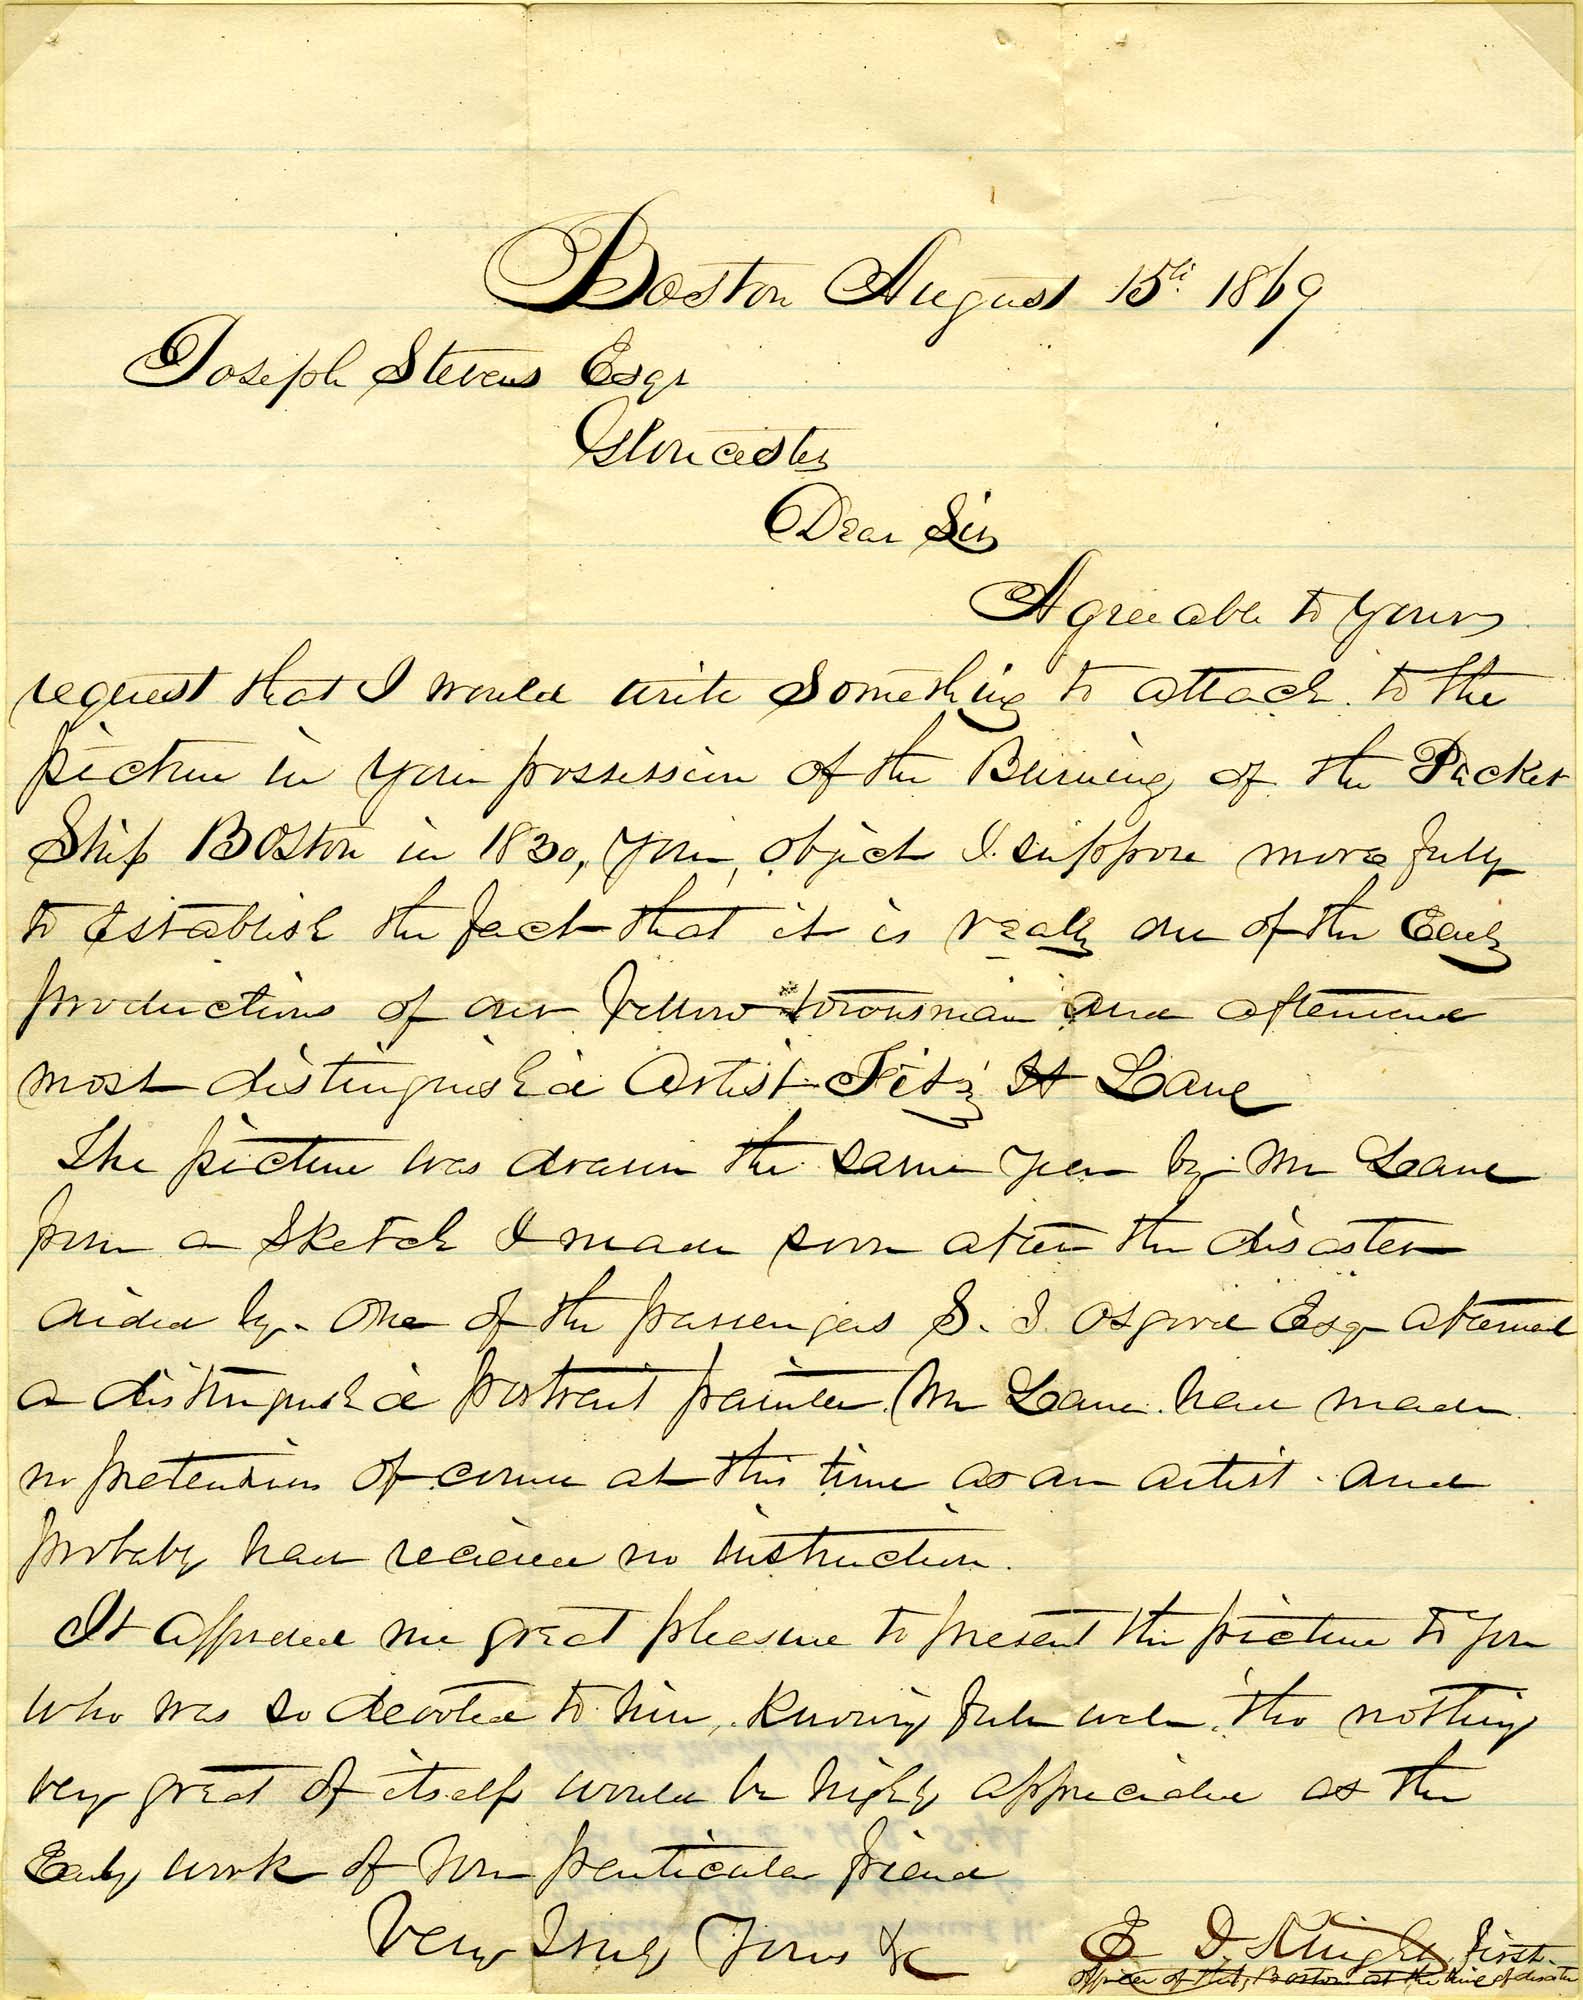 Boston August 15th 1869
Joseph Stevens Esqr
Gloucester
Dear Sir
Agreeable to yours
request that I would write something to attach to the
picture in your possession of the Burning of the Packet
Ship Boston in 1830, your object I suppose more fully
to establish the fact that it is really one of the Early
productions of our fellow townsman and afterward
most distinguished Artist Fitz H Lane
The picture was drawn the same year by Mr Lane
from a sketch I made soon after the disaster
aided by one of the passengers S. S. Osgood Esq afterward
a distinguished portrait painter. Mr Lane had made
no pretensions of course at this time as an artist and
probaby had received no instruction.
It afforded me great pleasure to present the picture to you
who was so devoted to him, knowing full well, tho nothing
very great of itself would be highly appreciated as the
Early work of your particular friend
Very Truly Yours &c
E D. Knight, First
officer of Ship Boston at the time of disaster